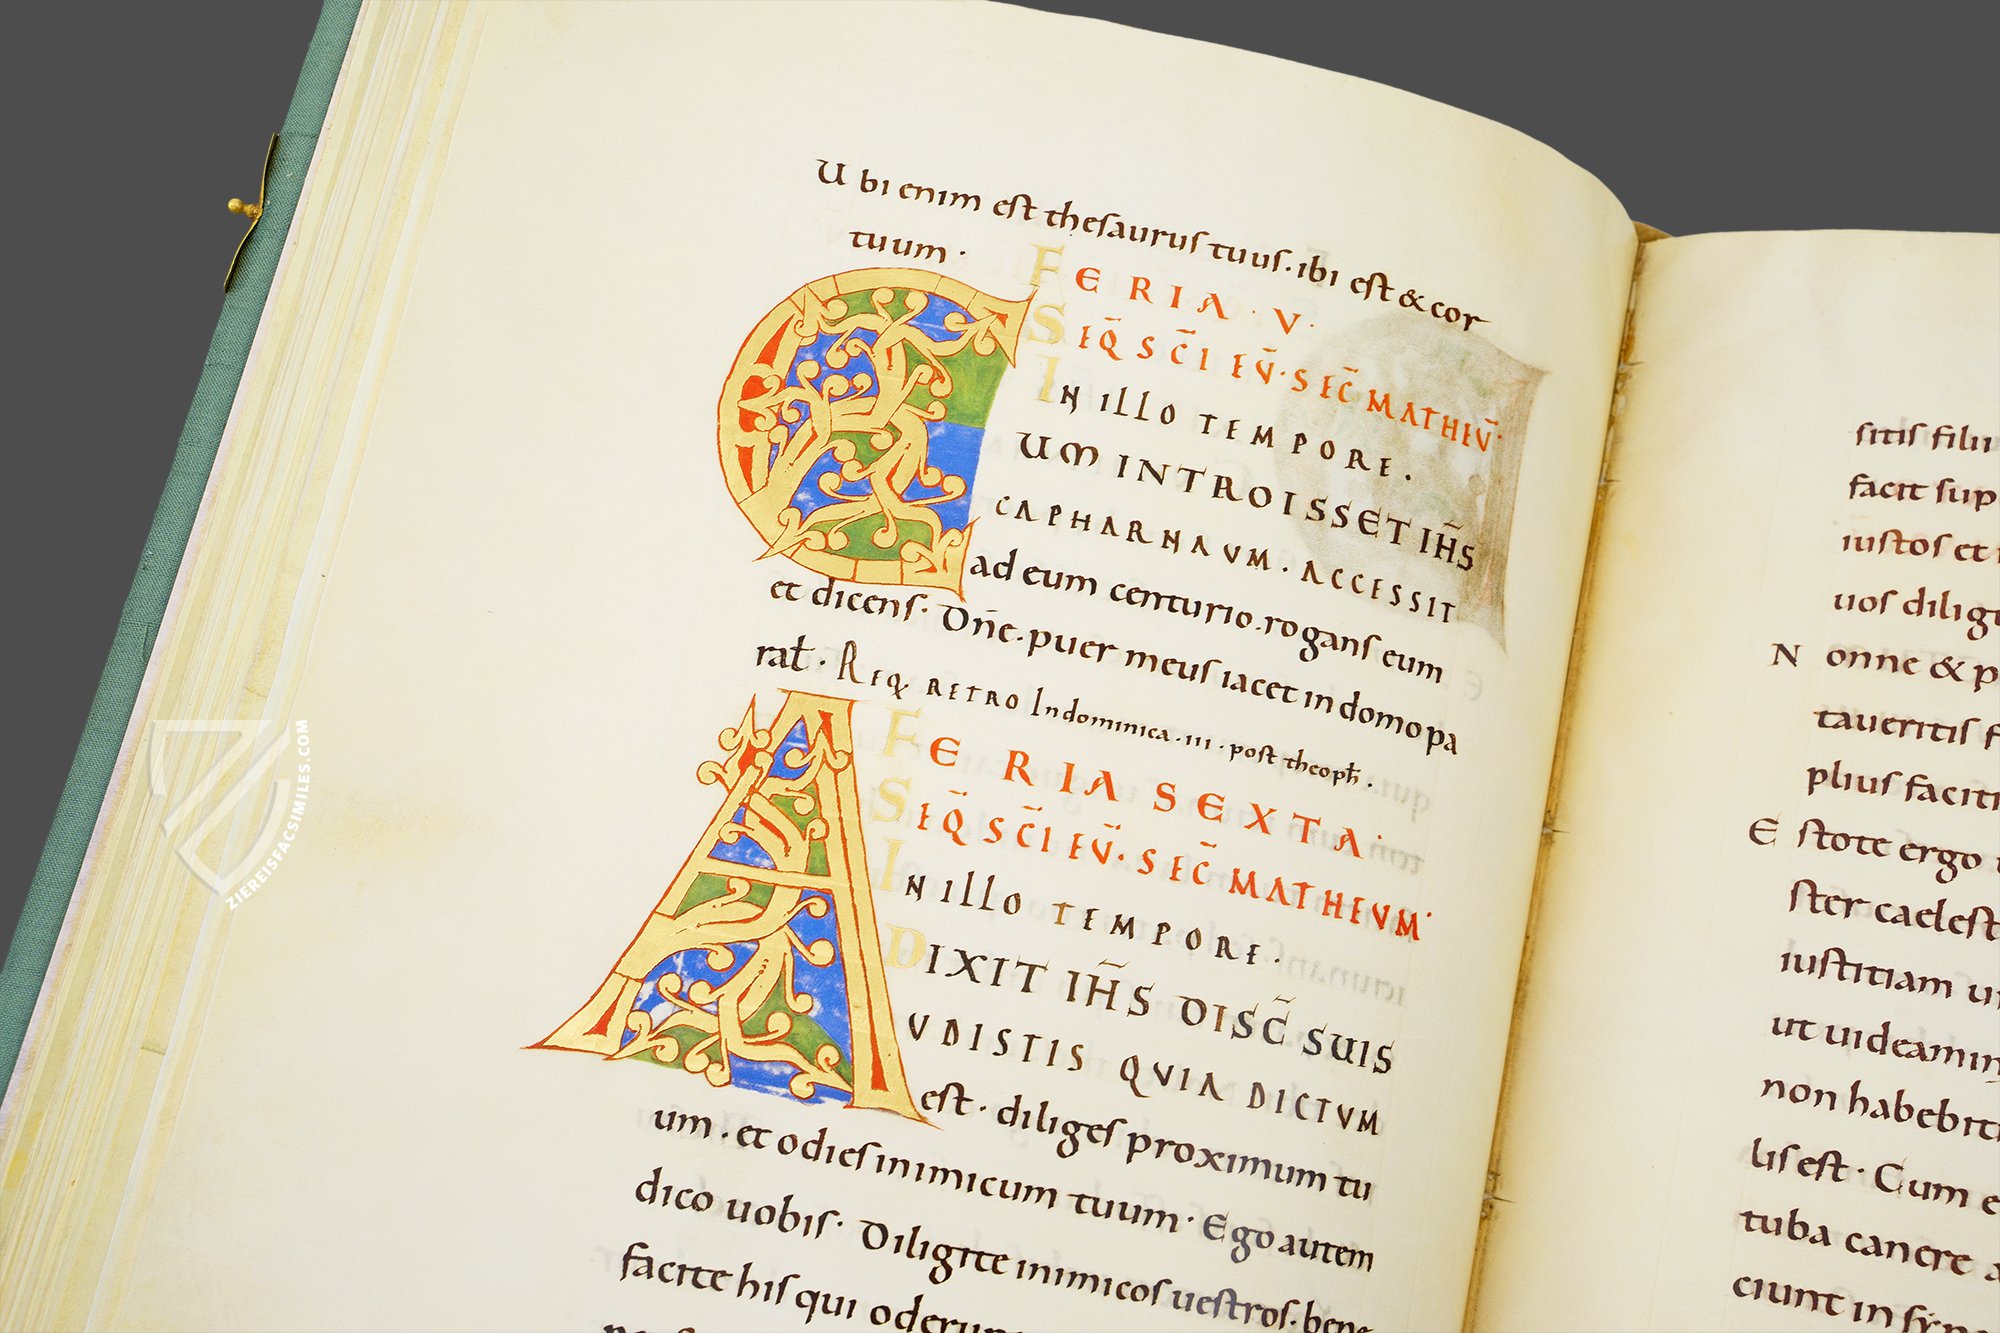 Ubi enim est thesaurus tuus· ibi est & cor
tuum·
FERIA·V·
SEQ̄ SC̄I EV̄· SEC̄ MATHEV̄·
IN ILLO TEMPORE·
CUM INTROISSET IH̄S
CAPHARNAVM· ACCESSIT
ad eum centurio· rogans eum
et dicens· Dn̄e· puer meus iacet in domo pa
ral̄· REQ RETRO In dominica· III· post theoph̄·
FERIA SEXTA·
SEQ̄ SC̄I EV̄· SEC̄ MATHEVM·
IN ILLO TEMPORE·
DIXIT IH̄S DISC̄ SUIS
AVDISTIS QVIA DICTVM
est· diliges proximum tu
um· et odies inimicum tuum· Ego autem
dico uobis· Diligite inimicos uestros· bene
facite his qui
sitis filii
facit sup
iustos et
uos dilig
Nonne & p
taueritis f
plius faciti
Estote ergo
ster caelest
iustitiam u
ut uideamin
non habebit
lis est· Cum e
tuba canere a
ciunt in syn
ZIEREISFACSIMILES.COM